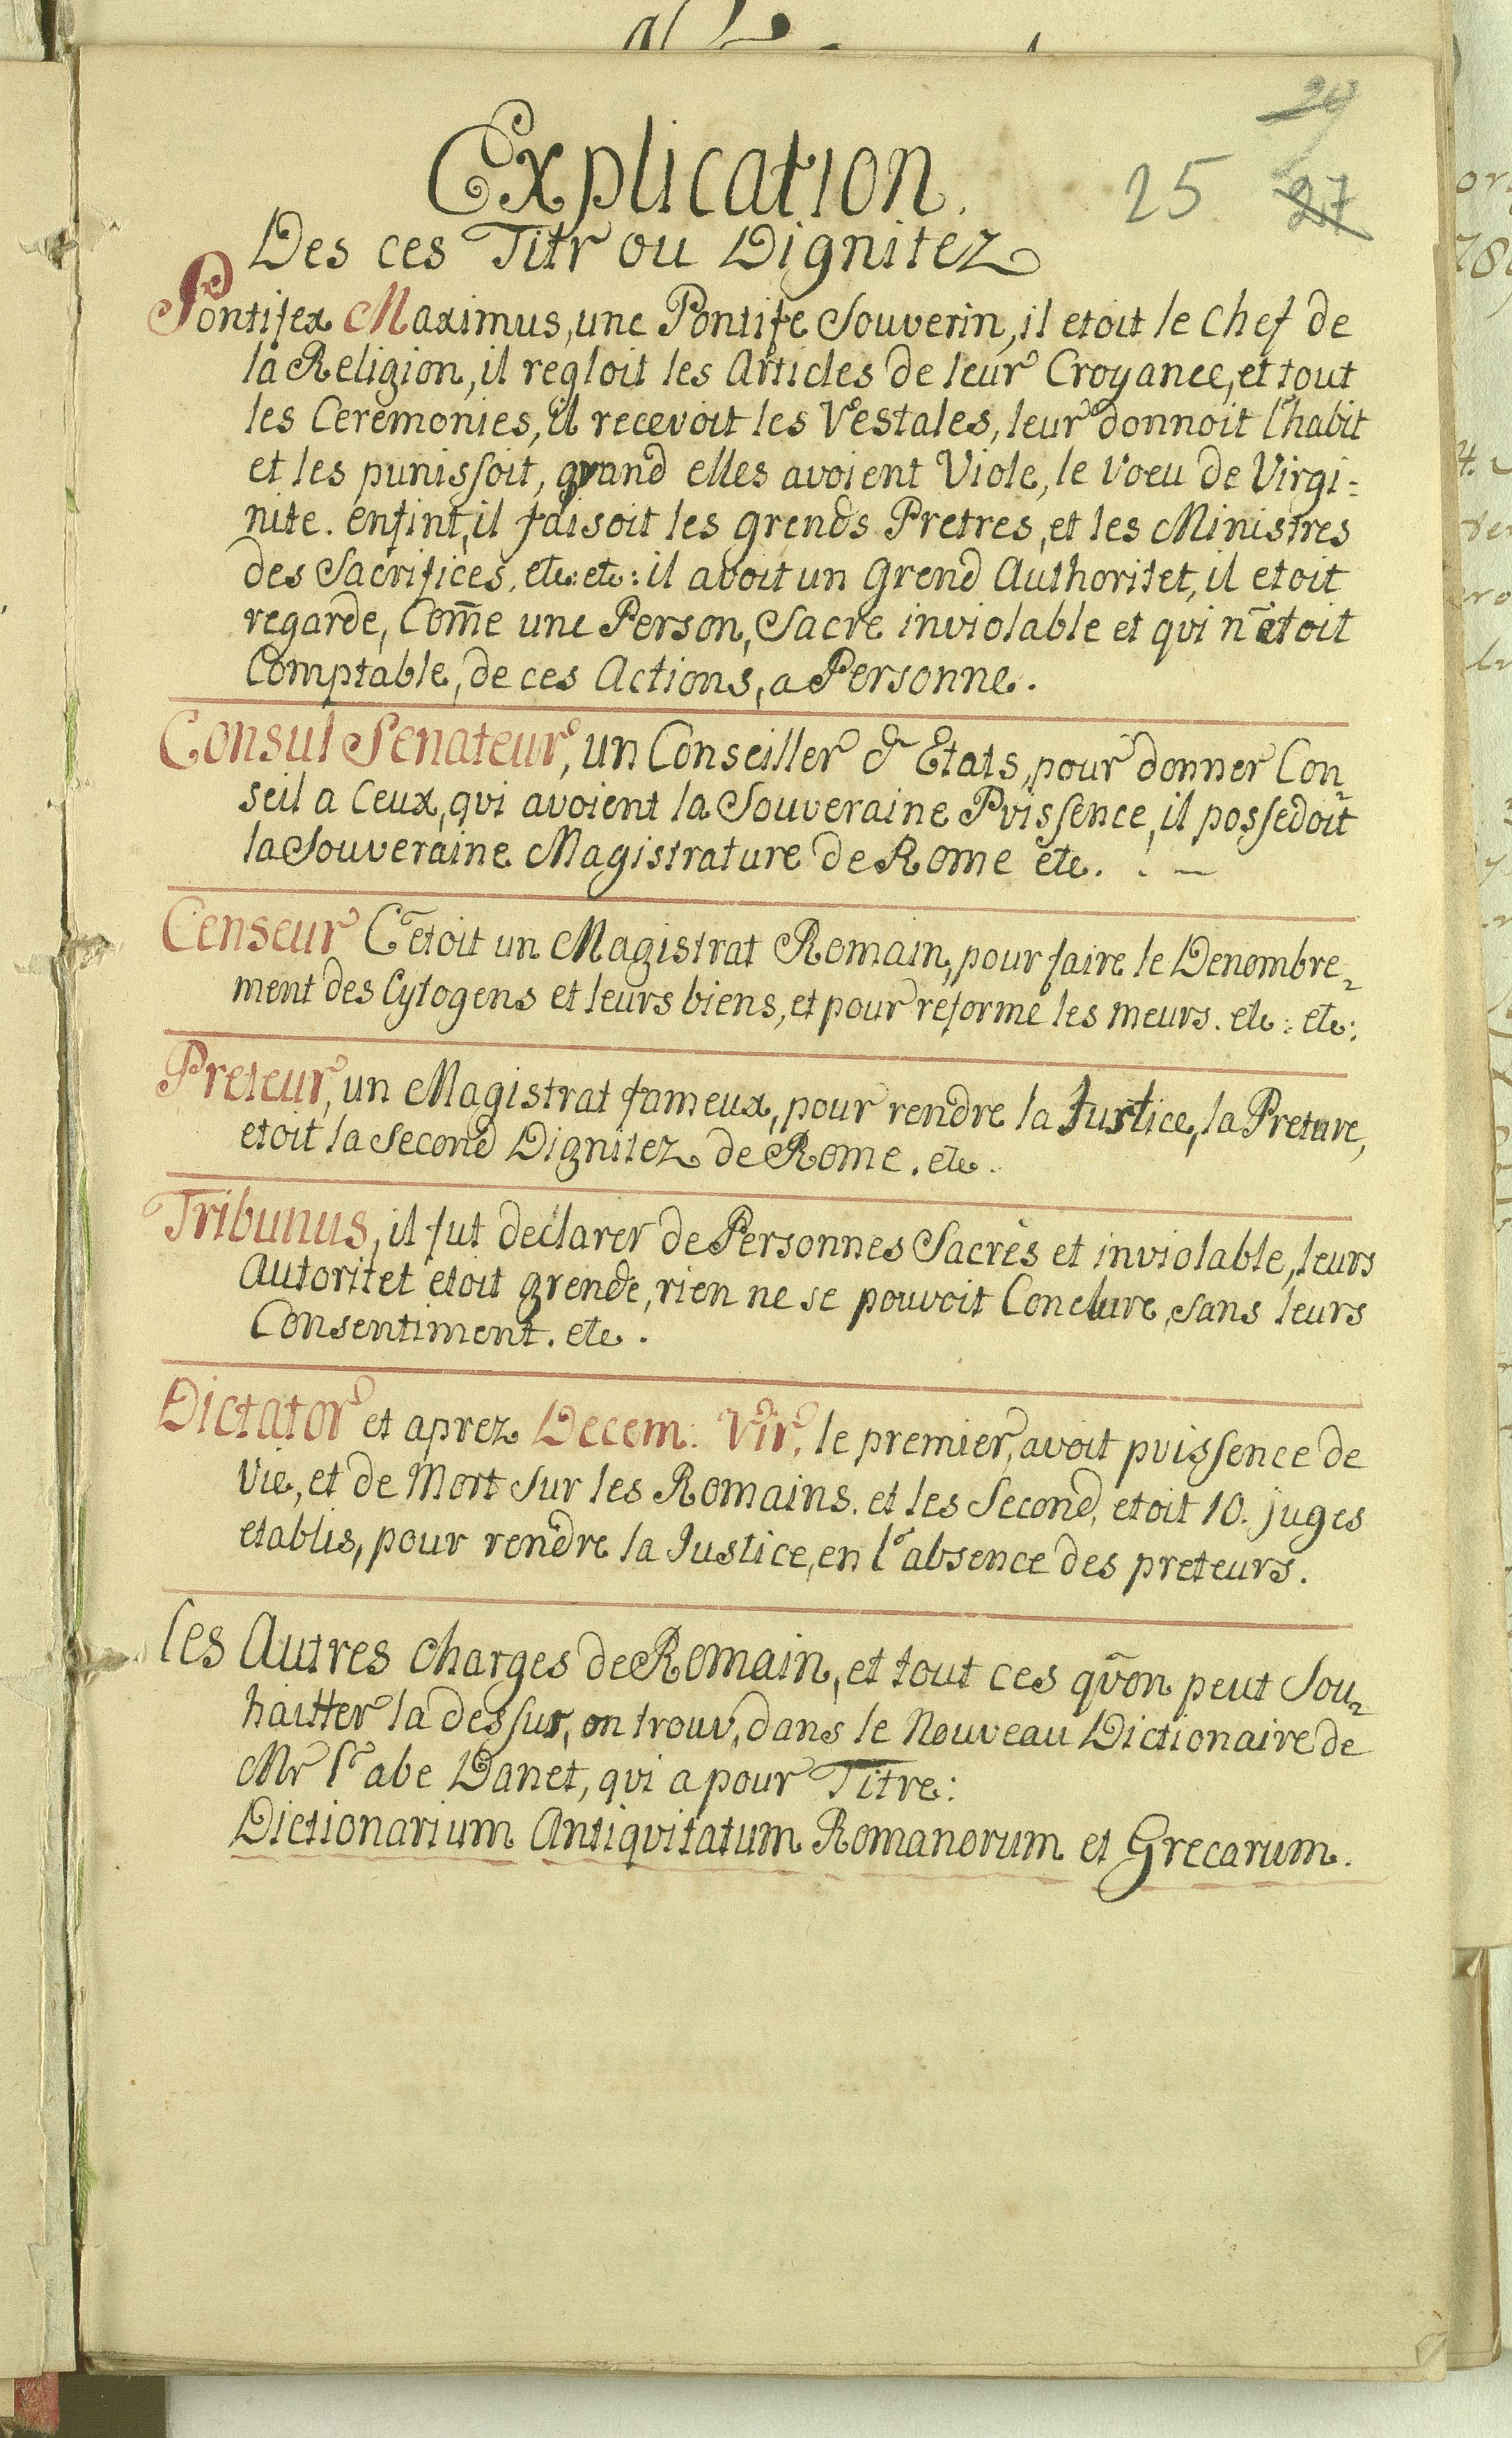 29
25 27
Explication.
Des ces Titr ou Dignitez
Pontifex Maximus, une Pontife Souverin, il etoit le Chef de
la Religion, il regloit les Articles de leur Croyance, et tout
les Ceremonies, il recevoit les Vestales, leur donnoit l'habit
et les punissoit, quand elles avoient Viole, le voeu de Virgi=
nite. enfint, il faisoit les grends Pretres, et les Ministres
des Sacrifices, etc: etc: il avoit un Grend Authoritet, il etoit
regarde, Com̄e une Person, Sacre inviolable et qui n'etoit
Comptable, de ces Actions, a Personne.
Consul Senateur, un Conseiller d'Etats, pour donner Con=
seil a Ceux, qui avoient la Souveraine Puissence, il possedoit
la Souveraine Magistrature de Rome etc. . -
Censeur C'etoit un Magistrat Romain, pour faire le Denombre=
ment des Cytogens et leurs biens, et pour reforme les meurs. etc: etc:
Preteur, un Magistrat fameux, pour rendre la Justice, la Preture,
etoit la Second Dignitez de Rome. etc.
Tribunus, il fut declarer de Personnes Sacrés et inviolable, leurs
Autoritet etoit grende, rien ne se pouvoit Conclure, sans leurs
Consentiment. etc.
Dictator et aprez Decem: Vir, le premier, avoit puissence de
Vie, et de Mort sur les Romains. et les Second, etoit 10. juges
etablis, pour rendre la Justice, en l'absence des preteurs.
les Autres charges de Romain, et tout ces qu'on peut Sou=
haitter la dessus, on trouv, dans le Nouveau Dictionaire de
Mr l'abe Danet, qui a pour Titre:
Dictionarium Antiquitatum Romanorum et Grecarum.